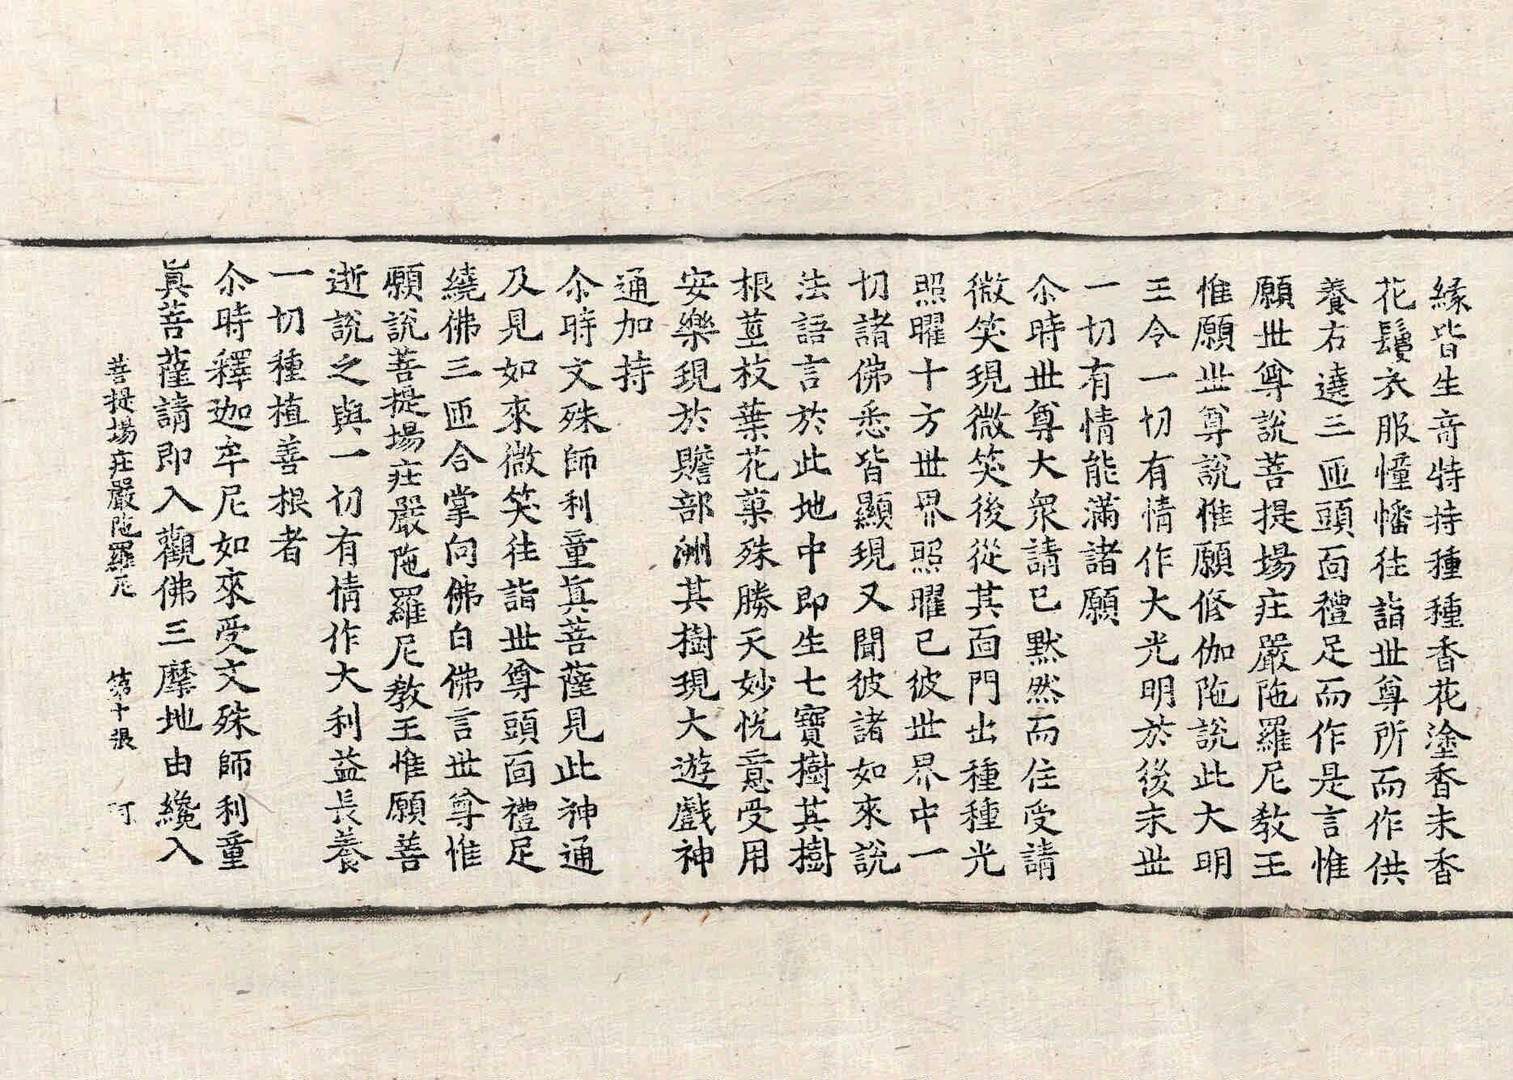 緣皆生奇特持種種香花塗香末香
花鬘衣服憧幡往詣世尊所而作供
養右遶三迊頭面禮足而作是言惟
願世尊說菩提場莊嚴陁羅尼教王
惟願世尊說惟願修伽陁說此大明
王令一切有情作大光明於後末世
一切有情能滿諸願
尒時世尊大衆請已黙然而住受請
微笑現微微笑後從其面門出種種光
照曜十方世界照曜已彼世界中一
切諸佛悉皆顯現又聞彼諸如來說
法語言於此地中即生七寶樹其樹
根莖枝葉花菓殊勝天妙悅意受用
安樂現於贍部洲其樹現大遊戲神
通加持
尒時文殊師利童眞菩薩見此神通
及見如來微笑往詣世尊頭面禮足
繞佛三迊合掌向佛白佛言世尊惟
願說菩提場莊嚴陁羅尼教王惟願善
逝說之與一切有情作大利益長養
一切種植善根者
尒時釋迦牟尼如來受文殊師利童
眞菩薩請即入觀佛三摩地由纔入
菩提場莊嚴陁羅尼 第十張 阿